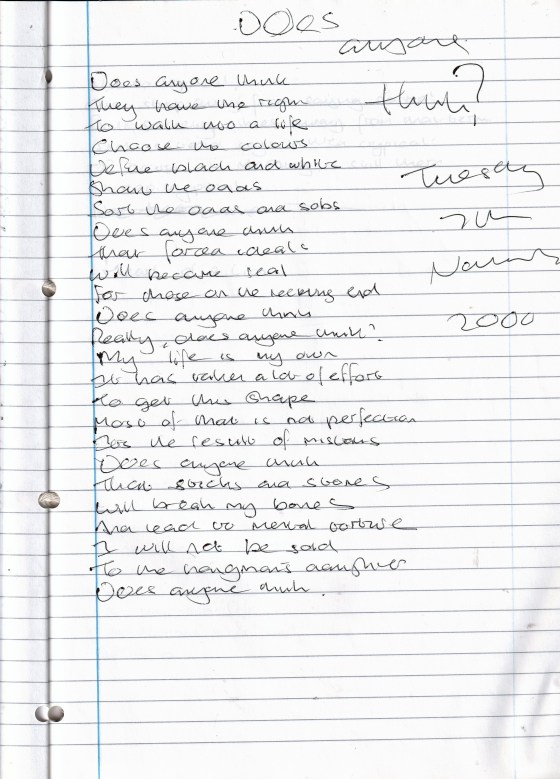 Does
anyone
think?
Does anyone think
They have the right
To walk into a life
Choose the colours
Define black and white
Share the odds
Sort the odds and sobs
Does anyone think
their forced ideals
will become real
For those on the receiving end
Does anyone think
Really, does anyone think?
My life is my own
It has taken a lot of effort
To get this shape
Most of that is not perfection
Its the result of
Does anyone think
That sticks and stones
will break my bones
And lead to mental torture
I will not be sold
To the hangman's daughter
Does anyone think.
Tuesday
7th
November
2000